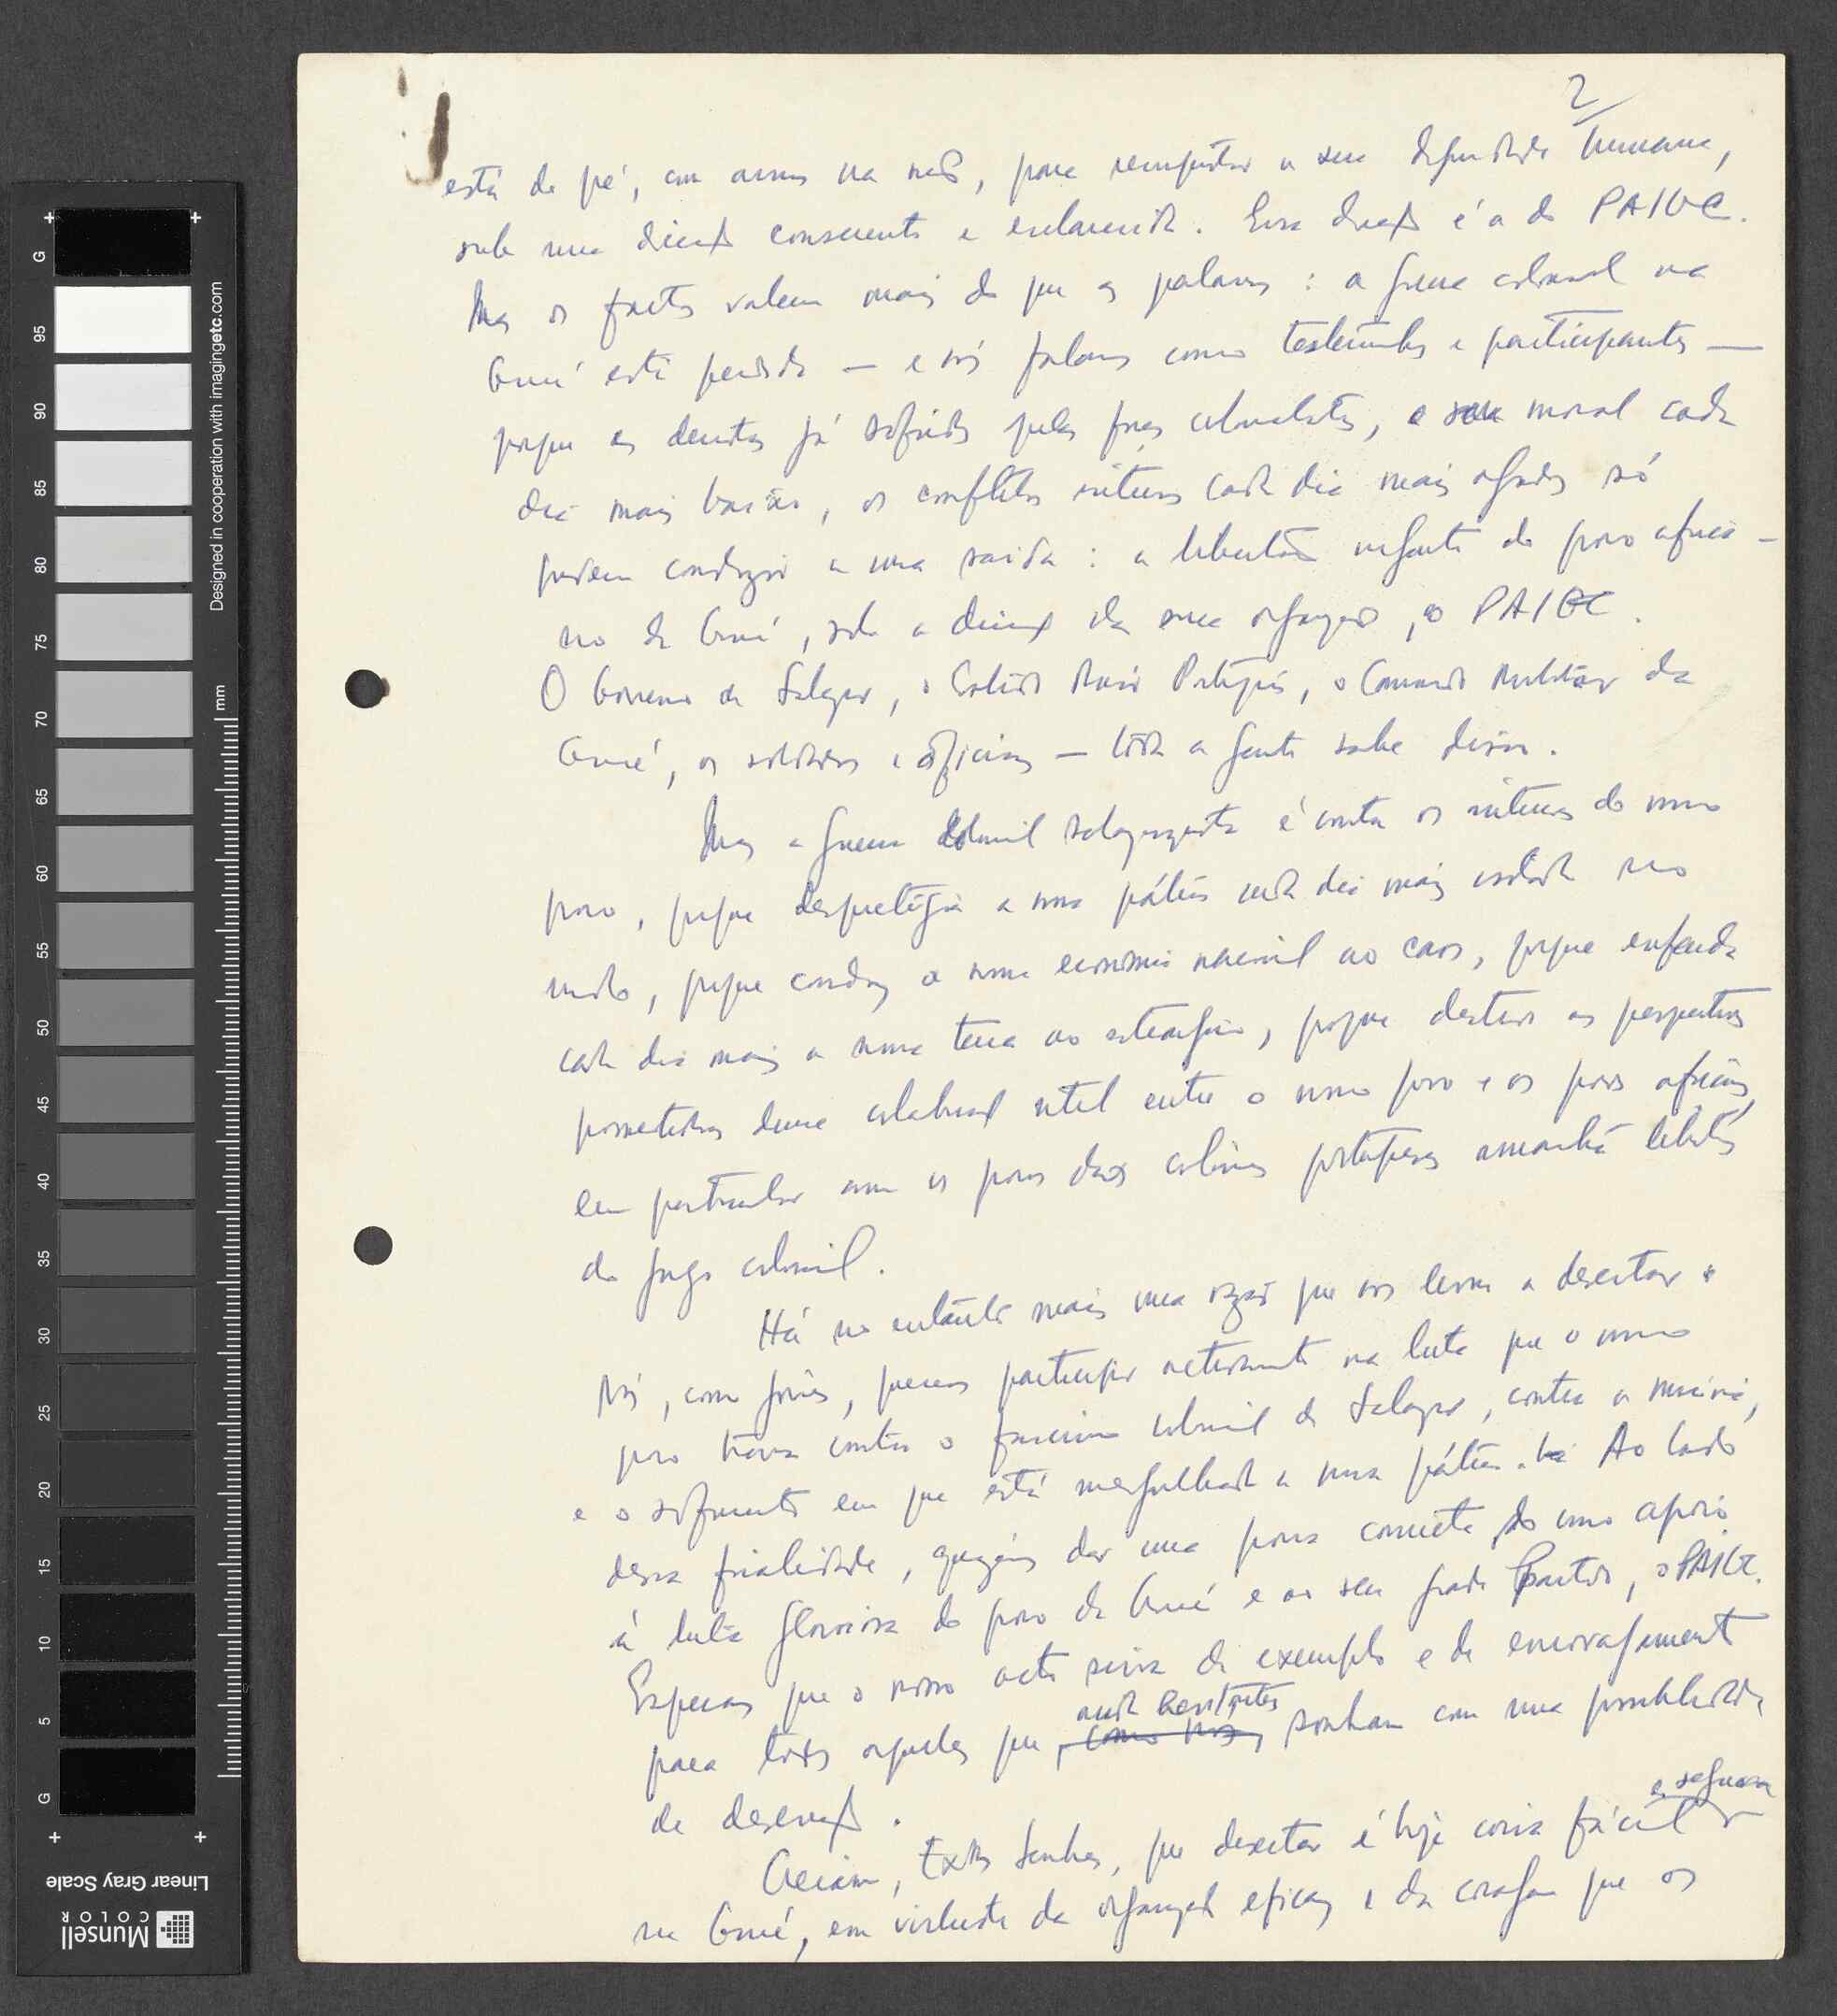 2/
está de pé, em armas na mão, para reconquistar a sua dignidade humana,
sob uma direcção consciente e esclarecida. Essa direcção é a do PAIGC.
Mas os factos valem mais do que as palavras: a guerra colonial na
Guiné está perdida — e nós falamos como testemunhas e participantes —
porque as derrotas já sofridas pelas forças colonialistas, o seu moral cada
dia mais baixo, os conflitos internos cada dia mais agudos só
podem conduzir a uma saída: a libertação urgente do povo africa-
no da Guiné, sob a direcção da sua organização, o PAIGC.
O Governo de Salazar, o Estado Maior Português, o Comando Militar da
Guiné, os soldados e oficiais — toda a gente sabe disso.
Mas a guerra colonial salazarista é contra os interesses do nosso
povo, porque desprestigia a nossa pátria cada dia mais isolada no
mundo, porque conduz a nossa economia nacional ao caos, porque enfeuda
cada dia mais a nossa terra ao estrangeiro, porque destroi as perspectivas
prometedoras duma colaboração util entre o nosso povo e os povos africanos,
em particular com os povos das colónias portuguesas amanhã libertos
do jugo colonial.
Há no entanto mais uma razão que nos levou a desertar:
Nós, como jovens, queremos participar activamente na luta que o nosso
povo trava contra o fascismo colonial de Salazar, contra a miséria,
e o sofrimento em que está mergulhada a nossa pátria. Ao lado
dessa finalidade, quizémos dar uma prova concreta do nosso apoio
à luta gloriosa do povo da Guiné e ao seu grande Partido, o PAIGC.
Esperamos que o nosso acto sirva de exemplo e de encorajamento
para todos aqueles que, ainda hesitantes, sonham com uma possibilidade
de deserção.
Creiam, Exmos Senhores, que desertar é hoje coisa fácil e segura
na Guiné, em virtude da organização eficaz e da coragem que os